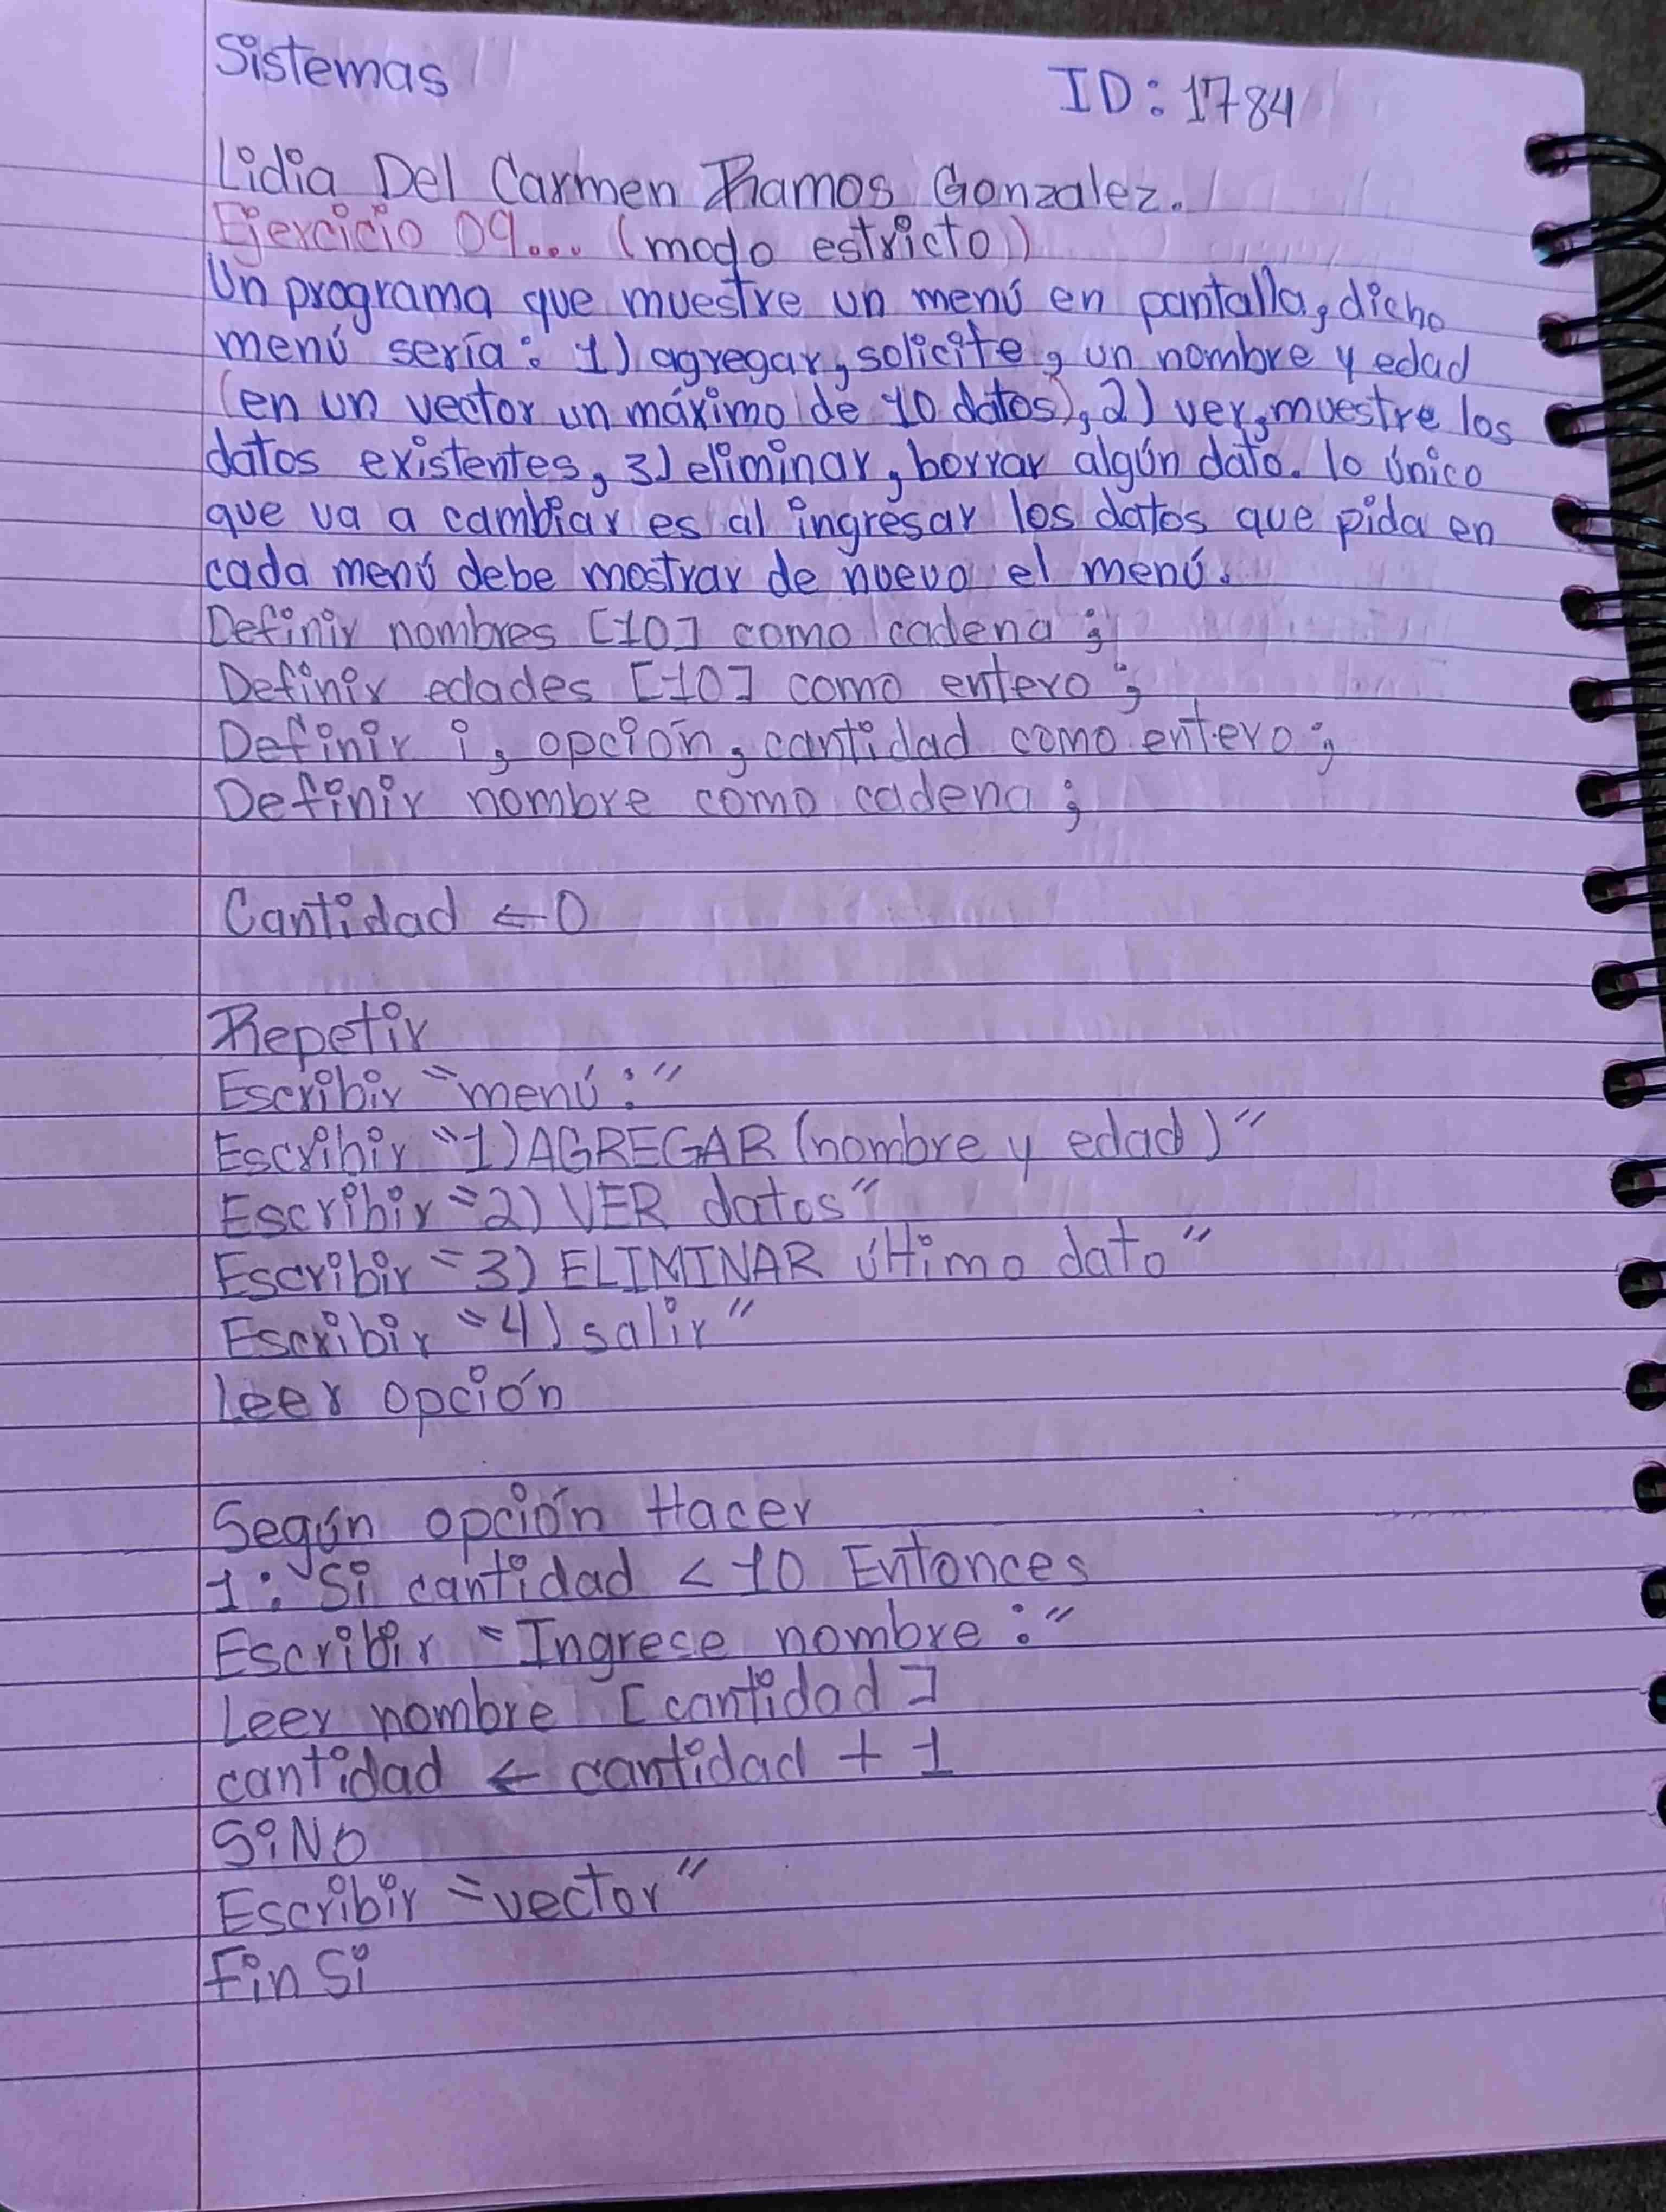 Sistemas
ID: 1784
Lidia Del Carmen Ramos Gonzalez.
Ejercicio 09... (modo estricto)
Un programa que muestre un menú en pantalla, dicho
menú sería: 1) agregar, solicite, un nombre y edad
(en un vector un máximo de 10 datos), 2) ver, muestre los
datos existentes, 3) eliminar, borrar algún dato. lo único
que va a cambiar es al ingresar los datos que pida en
cada menú debe mostrar de nuevo el menú.
Definir nombres [10] como cadena ;
Definir edades [10] como entero ;
Definir i, opción, cantidad como entero ;
Definir nombre como cadena ;
Cantidad ← 0
Repetir
Escribir "menú:"
Escribir "1) AGREGAR (nombre y edad)"
Escribir "2) VER datos"
Escribir "3) ELIMINAR último dato"
Escribir "4) salir"
Leer opción
Según opción Hacer
1: Si cantidad < 10 Entonces
Escribir "Ingrese nombre:"
Leer nombre [cantidad]
cantidad ← cantidad + 1
SiNo
Escribir "vector"
Fin Si